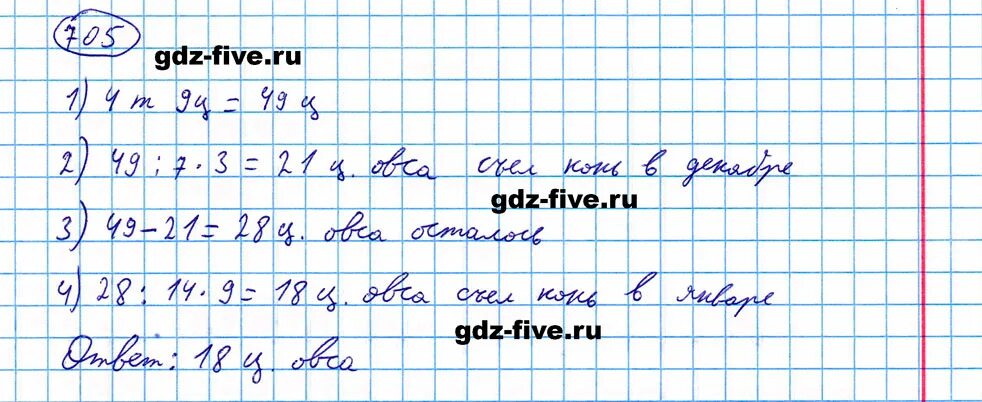 705
gdz-five.ru
1) 4 т 9ц = 49 ц
2) 49 : 7 · 3 = 21 ц. овса съел конь в декабре
gdz-five.ru
3) 49 - 21 = 28 ц. овса осталось
4) 28 : 14 · 9 = 18 ц. овса съел конь в январе
gdz-five.ru
Ответ: 18 ц. овса